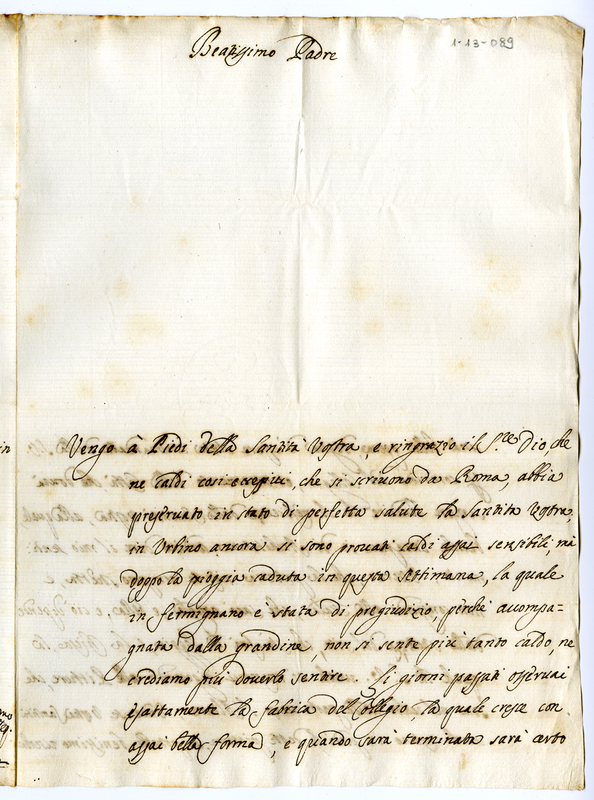 1-13-089
Beatissimo Padre
Vengo à Piedi della Santità Vostra, e ringrazio il S.re Dio, che
ne caldi così eccessivi, che si scrivono da Roma, abbia
preservato in stato di perfetta salute la Santità Vostra,
in Urbino ancora si sono provati caldi assai sensibili, mà
doppo la pioggia caduta in questa settimana, la quale
in fermignano e stata di pregiudizio, perchè accompa=
gnata dalla grandine, non si sente più tanto caldo, ne
crediamo più doverlo sentire. Li giorni passati osservai
esattamente la fabrica del Collegio, la quale cresce con
assai bella forma, e quando sarà terminata sarà certo